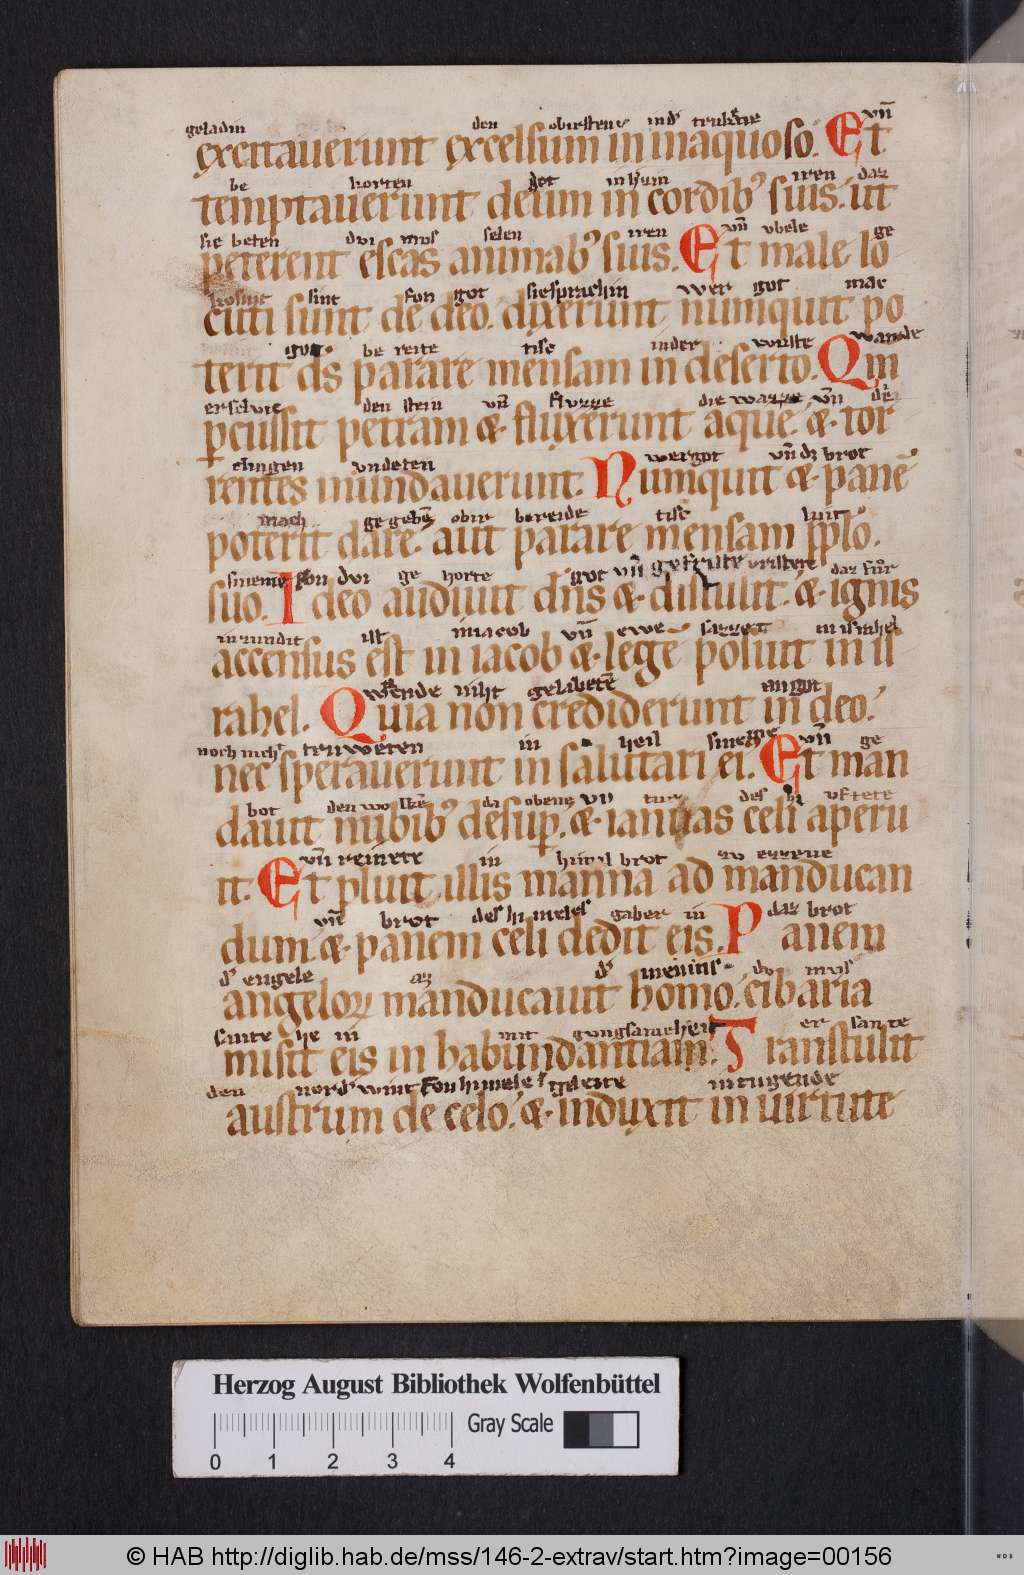 geladin den obirsten in d' trukēne vn̄
excitauerunt excelsum in inaquoso. Et
be horten got in hᵉrin iren daz
temptauerunt deum in cordib' suis. ut
sie beten dvi mvs selen iren vn̄ vbele ge
peterent escas animab' suis. Et male lo
kosint sint fon got sie sprachin wer got mac
cuti sunt de deo. dixerunt numquit po
got be reite tisc in der wuste wande
terit d̄s parare mensam in deserto. Qm̄
er selvic den stein vn̄ fluzze die wazze vn̄ die
pcussit petram &. fluxerunt aque. &. tor
clingen vndeten wer got vn̄ dz brot
rentes inundauerunt. Numquit &. panē
mach ge gebē odir bereide tisc luit
poterit dare. aut parare mensam pplō.
sineme fon dvi ge horte got vn̄ gefriste daz fůr
suo. Ideo audiuit dn̄s &. distulit. &. ignis
inzundit ist in iacob vn̄ ewe sazzet in isrihel
accensus est in iacob &. lege posuit in is
wende niht gelibetē an got
rahel. Quia non crediderunt in deo.
noch nicht truweten in heil sineme vn̄ ge
nec sperauerunt in salutari ei. Et man
bot den wolkē da obene vn̄ ture des hi vftete
dauit nubib' desup. &. ianuas celi aperu
vn̄ reinete in himil brot zv ezzene
it. Et pluit illis manna ad manducan
vn̄ brot des himeles gaber in daz brot
dum. &. panem celi dedit eis. Panem
d' engele az d' meninsc do mvs
angelorꝝ manducauit homo. cibaria
sante he in mit gvngsameheit er sante
misit eis in habundantiam. Transtulit
den nord' wint fon himele geleite in tugende
austrum de celo. &. induxit in uirtute
Herzog August Bibliothek Wolfenbüttel
Gray Scale
0 1 2 3 4
© HAB http://diglib.hab.de/mss/146-2-extrav/start.htm?image=00156